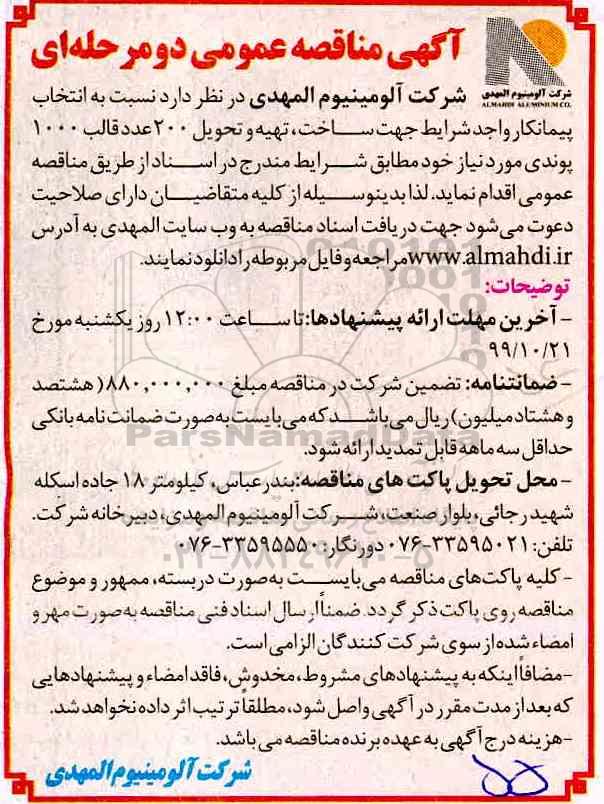 آگهی مناقصه عمومی دو مرحله‌ای
شرکت آلومینیوم المهدی
ALMAHDI ALUMINIUM CO.
شرکت آلومینیوم المهدی در نظر دارد نسبت به انتخاب
پیمانکار واجد شرایط جهت ساخت، تهیه و تحویل ۲۰۰ عدد قالب ۱۰۰۰
پوندی مورد نیاز خود مطابق شرایط مندرج در اسناد از طریق مناقصه
عمومی اقدام نماید. لذا بدینوسیله از کلیه متقاضیان دارای صلاحیت
دعوت می‌شود جهت دریافت اسناد مناقصه به وب سایت المهدی به آدرس
www.almahdi.ir مراجعه و فایل مربوطه را دانلود نمایند.
توضیحات:
- آخرین مهلت ارائه پیشنهادها: تا ساعت ۱۲:۰۰ روز یکشنبه مورخ
۹۹/۱۰/۲۱
- ضمانتنامه: تضمین شرکت در مناقصه مبلغ ۸۸۰,۰۰۰,۰۰۰ (هشتصد
و هشتاد میلیون) ریال می‌باشد که می‌بایست به صورت ضمانت نامه بانکی
حداقل سه ماهه قابل تمدید ارائه شود.
ParsNamadData
- محل تحویل پاکت های مناقصه: بندرعباس، کیلومتر ۱۸ جاده اسکله
شهید رجائی، بلوار صنعت، شرکت آلومینیوم المهدی، دبیرخانه شرکت.
تلفن: ۳۳۵۹۵۰۲۱-۰۷۶ دورنگار: ۳۳۵۹۵۵۵۰-۰۷۶
۰۲۱-۸۸۳۴۹۶۷۰-۵
- کلیه پاکت‌های مناقصه می‌بایست به صورت دربسته، ممهور و موضوع
مناقصه روی پاکت ذکر گردد. ضمناً ارسال اسناد فنی مناقصه به صورت مهر و
امضاء شده از سوی شرکت کنندگان الزامی است.
- مضافاً اینکه به پیشنهادهای مشروط، مخدوش، فاقد امضاء و پیشنهادهایی
که بعد از مدت مقرر در آگهی واصل شود، مطلقاً ترتیب اثر داده نخواهد شد.
- هزینه درج آگهی به عهده برنده مناقصه می باشد.
شرکت آلومینیوم المهدی